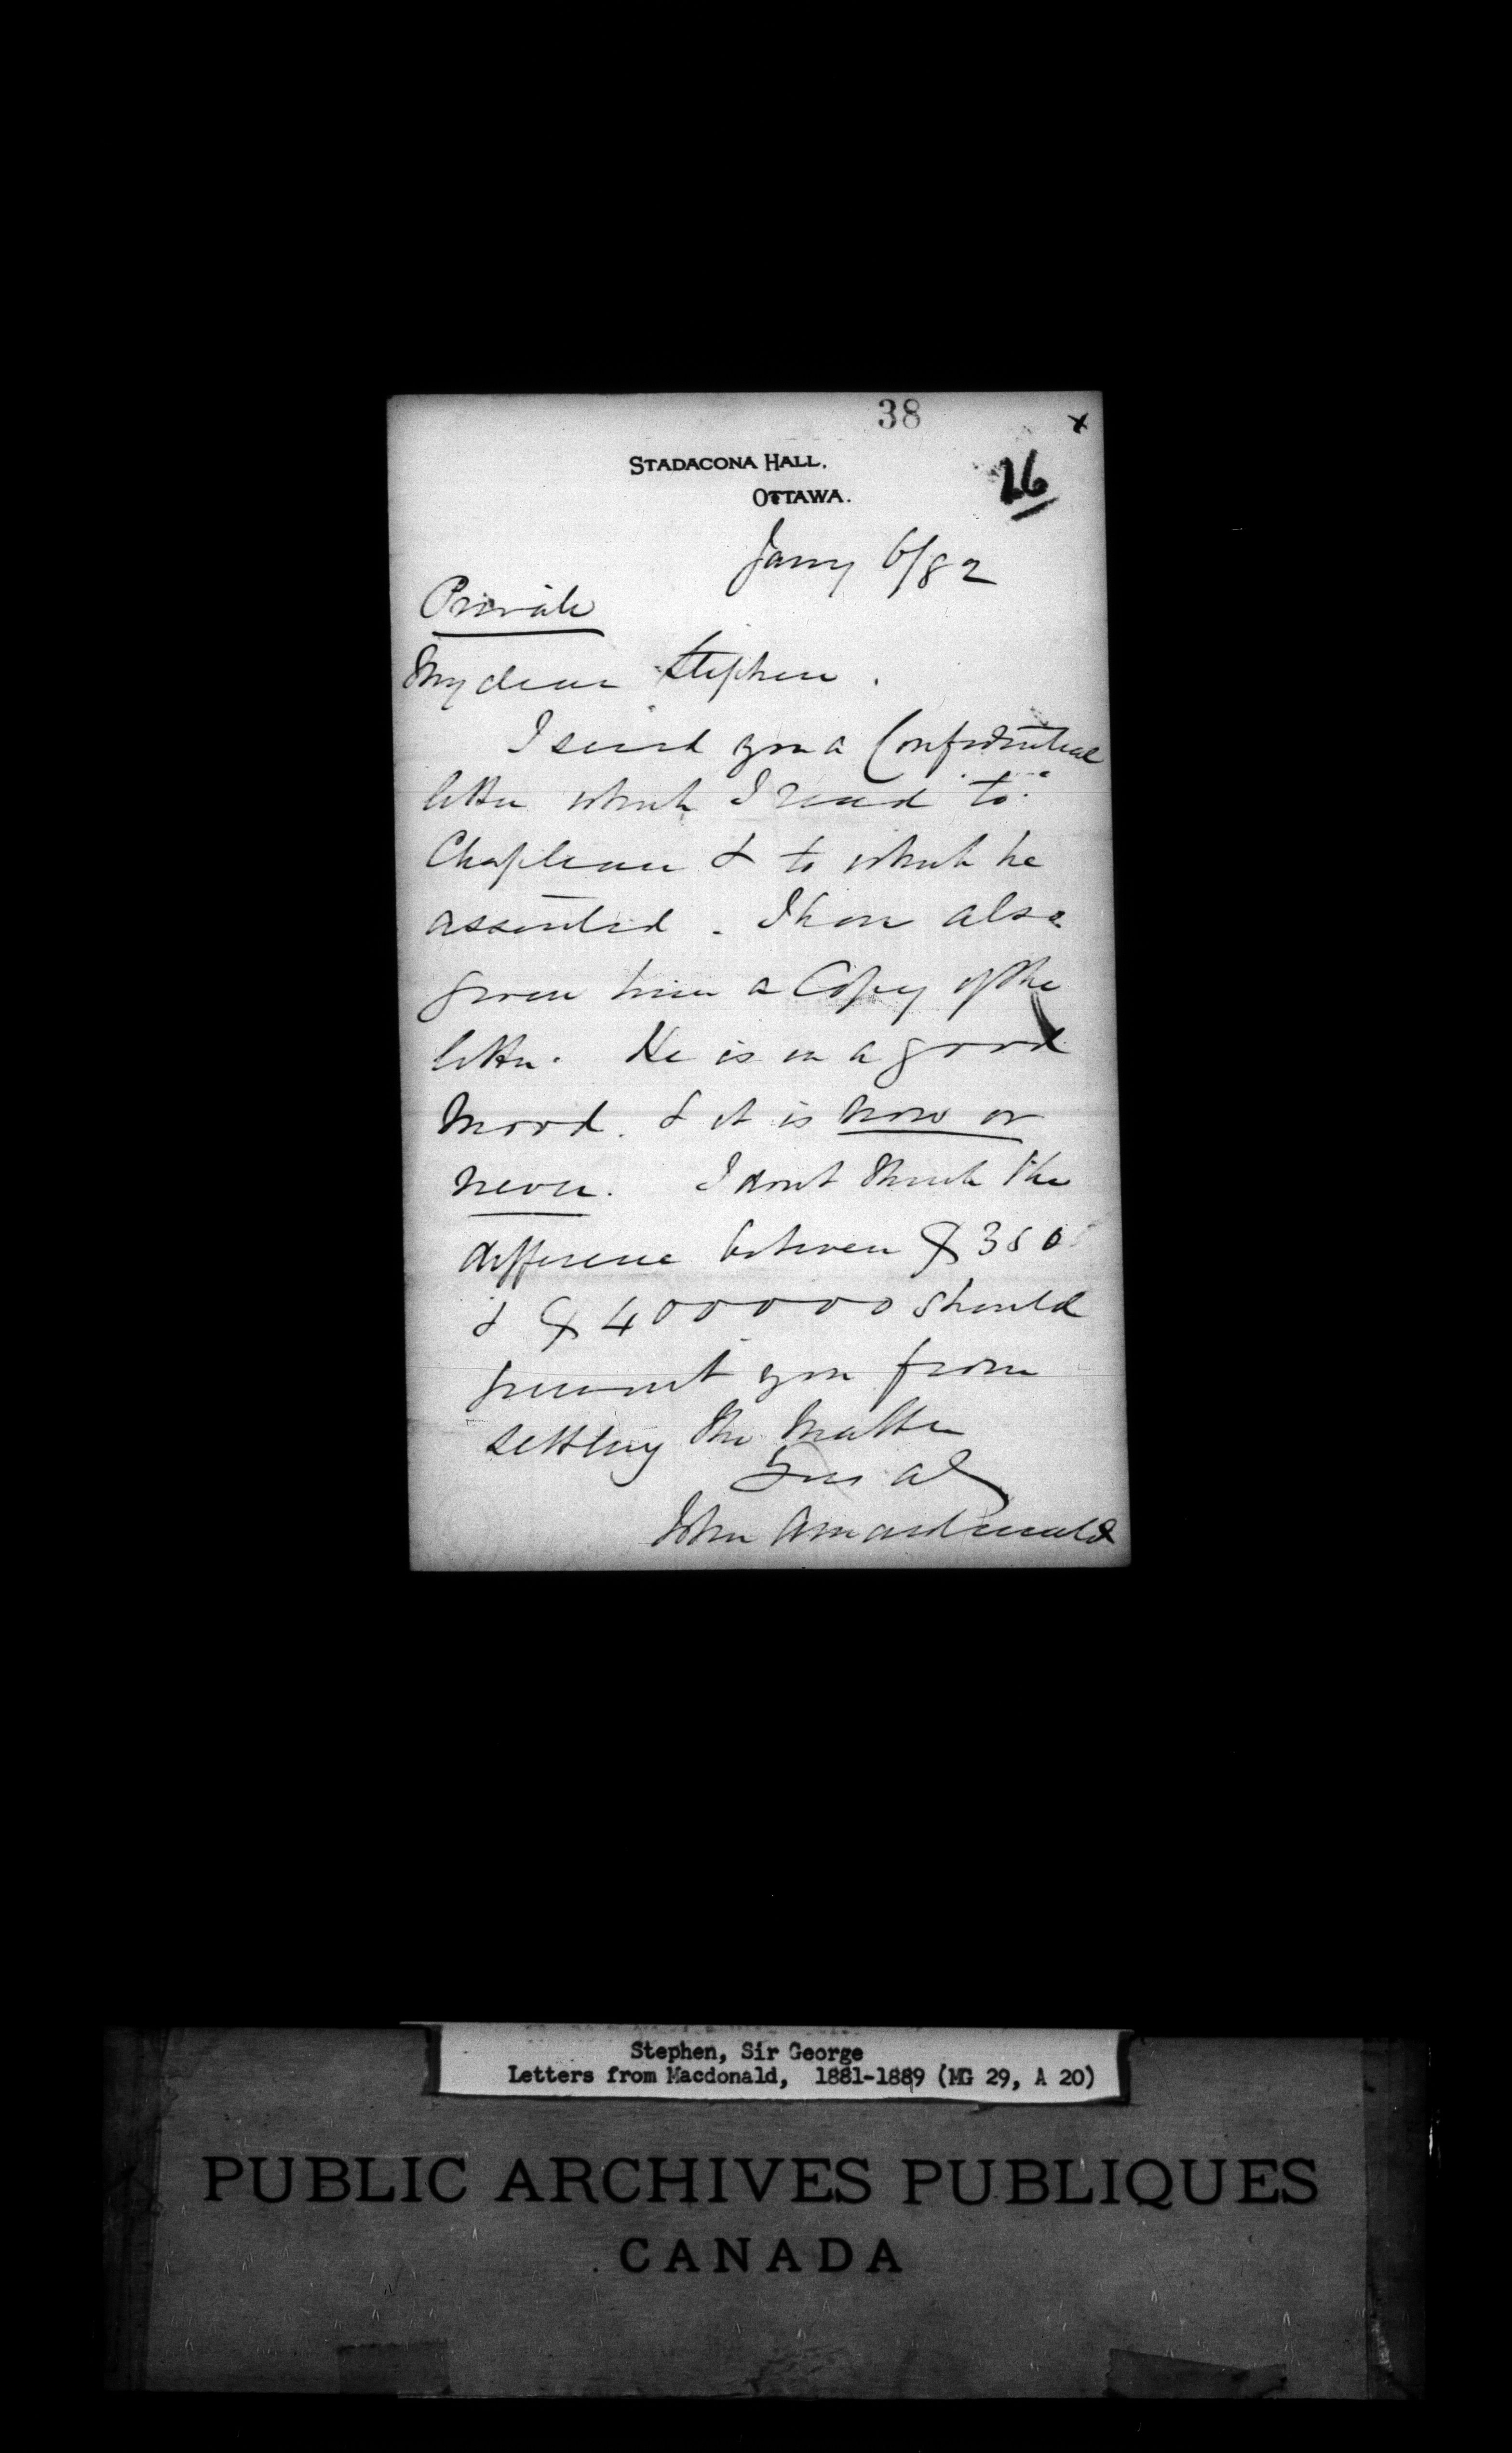 38
x
STADACONA HALL.
OTTAWA.
26
Jany 6/82
Private
My dear Stephen.
I send you a Confidential
letter which I read to
Chapleau & to which he
assented. I have also
given him a Copy of the
letter. He is in a good
mood. & it is now or
never. I dont think the
difference between $350
& $400000 should
prevent you from
settling the matter
Yrs al
John A Macdonald
Stephen, Sir George
Letters from Macdonald, 1881-1889 (MG 29, A 20)
PUBLIC ARCHIVES PUBLIQUES
CANADA